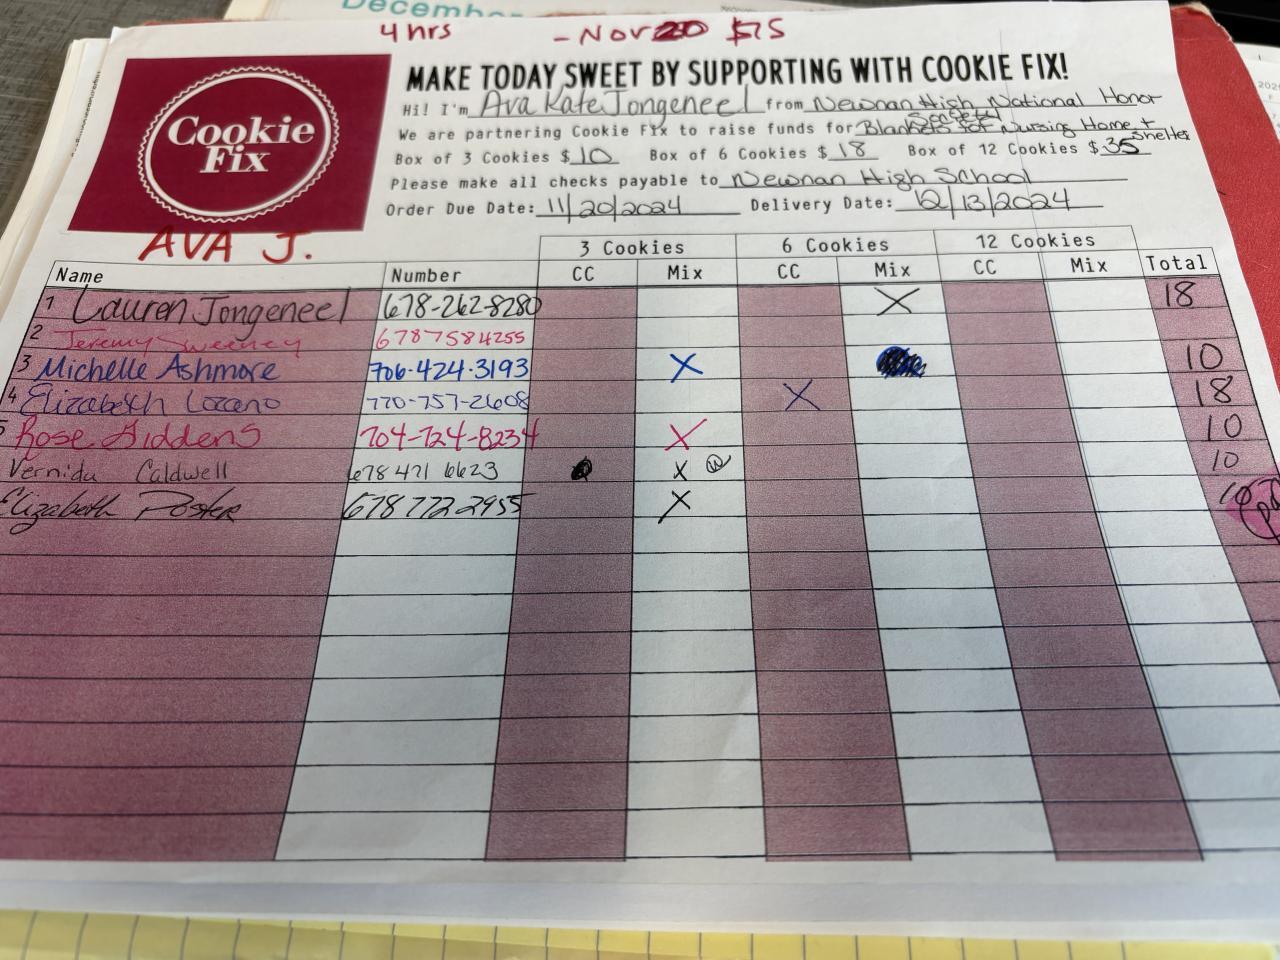 December
4 hrs - Nov 20 $75
Cookie
Fix
MAKE TODAY SWEET BY SUPPORTING WITH COOKIE FIX!
Hi! I'm Ava Kate Jongeneel from Newnan High National Honor
Society
We are partnering Cookie Fix to raise funds for Blankets for Nursing Home +
Shelter
Box of 3 Cookies $ 10 Box of 6 Cookies $ 18 Box of 12 Cookies $ 35
Please make all checks payable to Newnan High School
Order Due Date: 11/20/2024 Delivery Date: 12/13/2024
AVA J.
3 Cookies 6 Cookies 12 Cookies
Name Number CC Mix CC Mix CC Mix Total
1 Lauren Jongeneel 678-262-8280 X 18
2 Jeremy Sweeney 6787584255
3 Michelle Ashmore 706-424-3193 X 10
4 Elizabeth Lozano 770-757-2608 X 18
5 Rose Giddens 704-724-8234 X 10
Vernida Caldwell 678 471 6623 X 10
Elizabeth Poster 678 772 2955 X 10